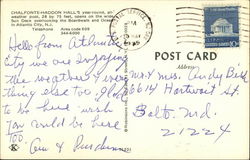 CHALFONTE-HADDON HALL'S year-round, all-
weather pool, 28 by 75 feet, opens on the wide
Sun Deck overlooking the Boardwalk and Ocean
in Atlantic City, N.J.
Telephone Area code 609
344-6000
Hello from Atlantic
City we are enjoying
the weather & every
thing else too glad
to be here wish
you could be here
too.
POST CARD
Address
Mr & Mrs. Andy
6614 Hartwait St
Balto. Md.
21224
10c
PM